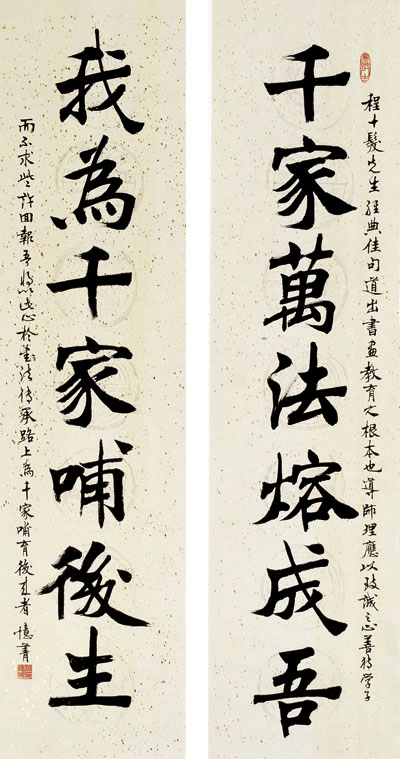 程十髮先生經典佳句道出書畫教育之根本也導師理應以致誠之心善待学子
千家萬法熔成吾
我為千家哺後生
而不求些許回報吾將此心於書法傳承路上為千家哺育後來者憶菁